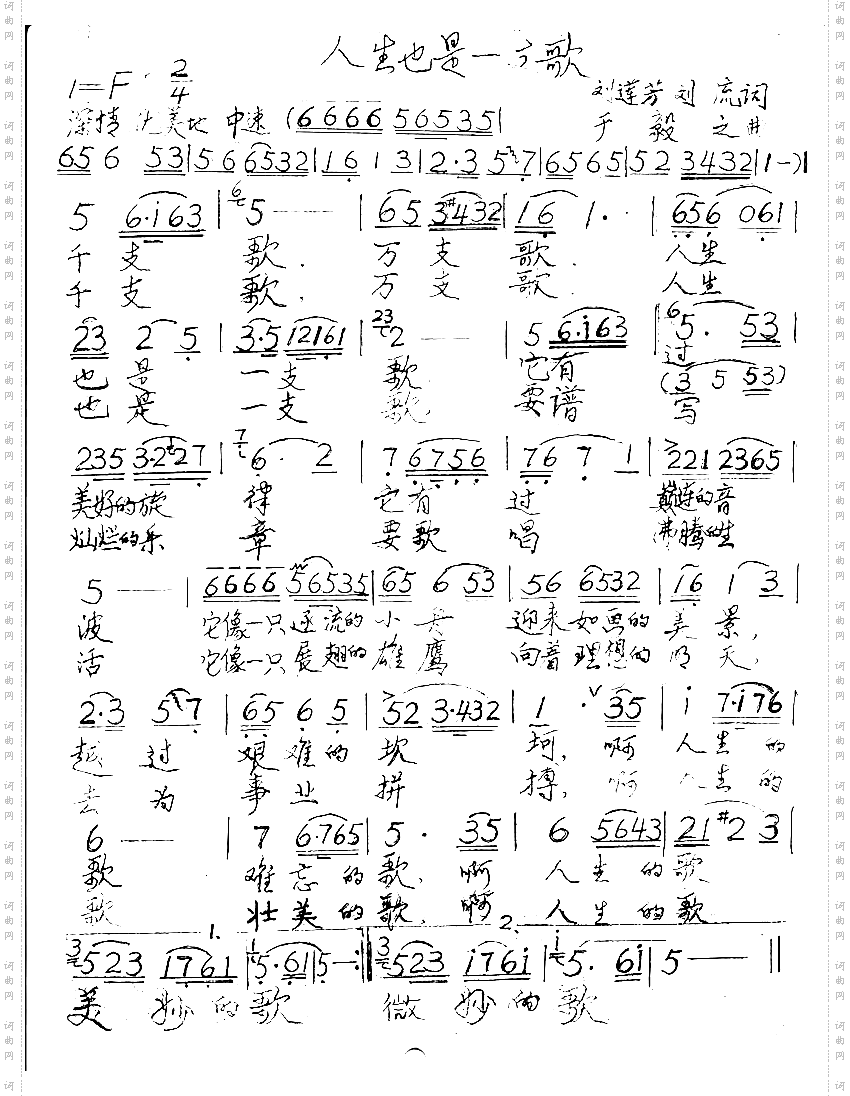 人生也是一歌
1=F 2/4
刘莲芳 刘 流词
深情 美地 中速 (6666 56535|
于 毅 之曲
65 6 53|56 6532|16 1 3|2·3 5 7|6565|52 3432|1-)|
5 6·i63|5——|65 3#432|16 1··|656 061|
千 支 歌. 万 支 歌. 人生
千 支 歌, 万 支 歌. 人生
23 2 5|3·5 12161|2——|5 6·i63|5· 53|
也 是 一支 歌 它有 过
(3 5 53)
也 是 一支 歌 要谱 写
235 3·2227|6· 2|7 6756|76 7 1|221 2365|
美好的旋 律 它有 过 的音
灿烂的乐 章 要歌 唱 沸腾的生
5——|6666 56535|65 6 53|56 6532|16 1 3|
波 它像一只 流的 小 迎来 如画的 美 景,
活 它像一只 展翅的 雄 鹰 向着 理想的 明 天,
2·3 5 7|65 6 5|52 3·432|1· V 35|i 7·i76|
越 过 艰 难的 坎 坷, 啊 人 生 的
去 为 事 业 拼 搏, 啊 人 生 的
6——|7 6·765|5· 35|6 5643|21 #2 3|
歌 难 忘 的 歌, 啊 人 生 的 歌
歌 壮 美 的 歌, 啊 人 生 的 歌
1. 2.
523 1761|5·61|5—:||523 i76i|5· 6i|5——||
美 妙 的 歌 微 妙 的 歌
词曲网